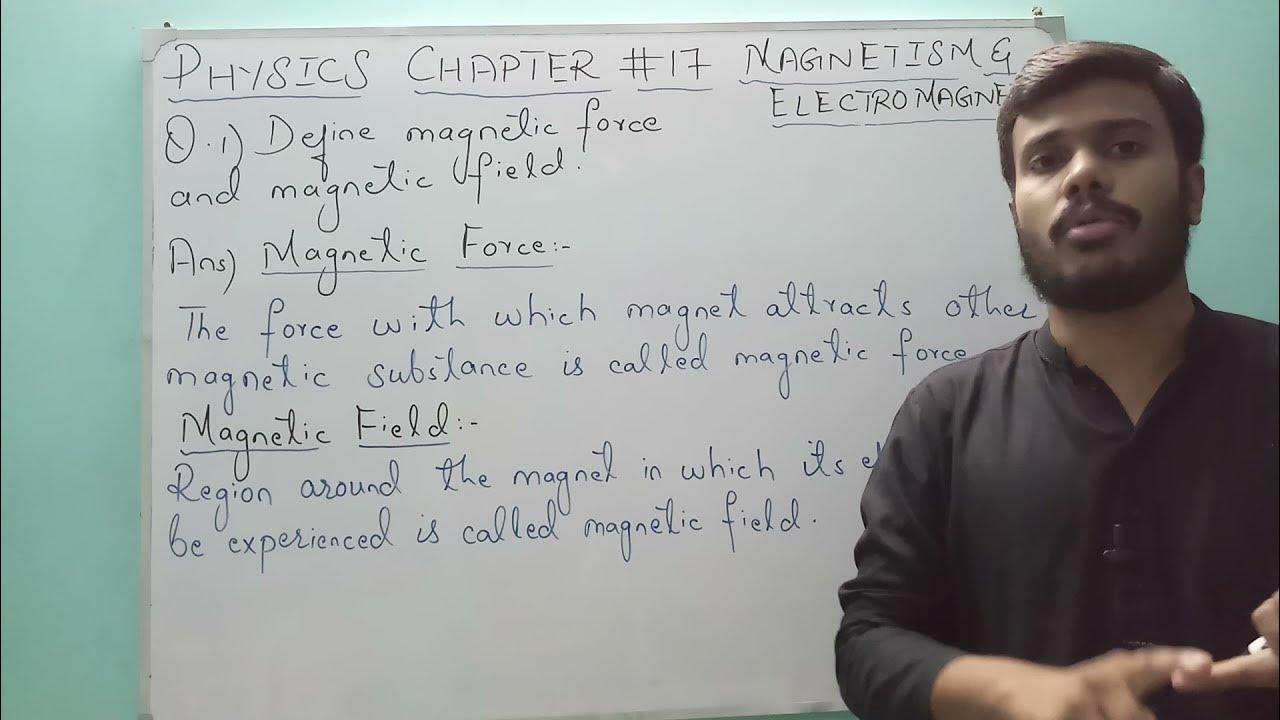 PHYSICS CHAPTER #17 MAGNETISM &
ELECTROMAGNE
Q.1) Define magnetic force
and magnetic field.
Ans) Magnetic Force:-
The force with which magnet attracts other
magnetic substance is called magnetic force
Magnetic Field:-
Region around the magnet in which its
be experienced is called magnetic field.